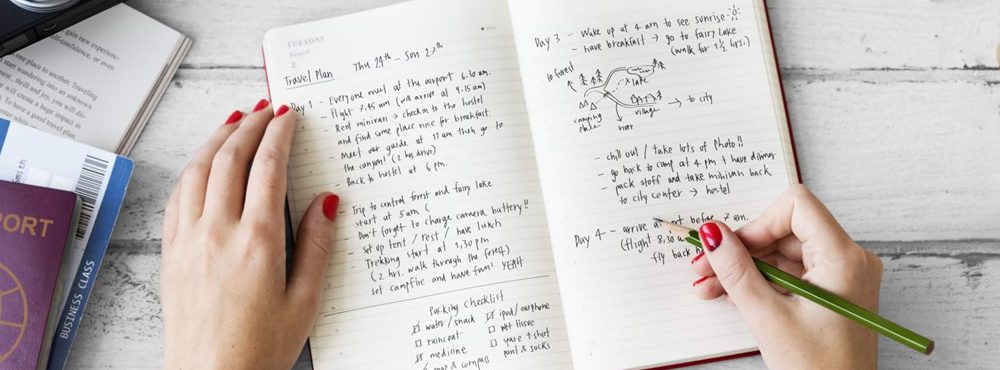 gain new experience
self-confidence, or even
one place to another. Traveling
start wandering into an unknown
thrill and joy, you will
can create a huge impact in
To have a good travel plan
Smith
PORT
BUSINESS CLASS
TUESDAY
August
2
Travel Plan Thu 24th - Sun 27th
Day 1 - Everyone meet at the airport 6.30 am.
- Flight 7.45 am (will arrive at 9.15 am)
- Rent minivan → checkin to the hostel
and find some place nice for breakfast.
- Meet our guide at 11 am then go to
the canyon! (2 hrs drive)
- Back to hostel at 6 pm.
- Trip to central forest and fairy lake
start at 5 am (
- Don't forget to charge camera battery!!
- Set up tent / rest / have lunch
- Trekking start at 1.30 pm
(2 hrs. walk through the forest)
set campfire and have fun! YEAH
Packing Checklist
water/snack
raincoat
medicine
compass
ipod/earphone
wet tissue
spare t-shirt
pant & socks
Day 3 - Wake up at 4 am to see sunrise
- have breakfast → go to fairy lake
(walk for 1½ hrs.)
to forest
lake
→ to city
camping
place
village
river
- chill out / take lots of photo!!
- go back to camp at 4 pm + have dinner
- pack stuff and take minivan back
to city center → hostel
Day 4 - arrive before 7 am.
(flight 8.30
fly back